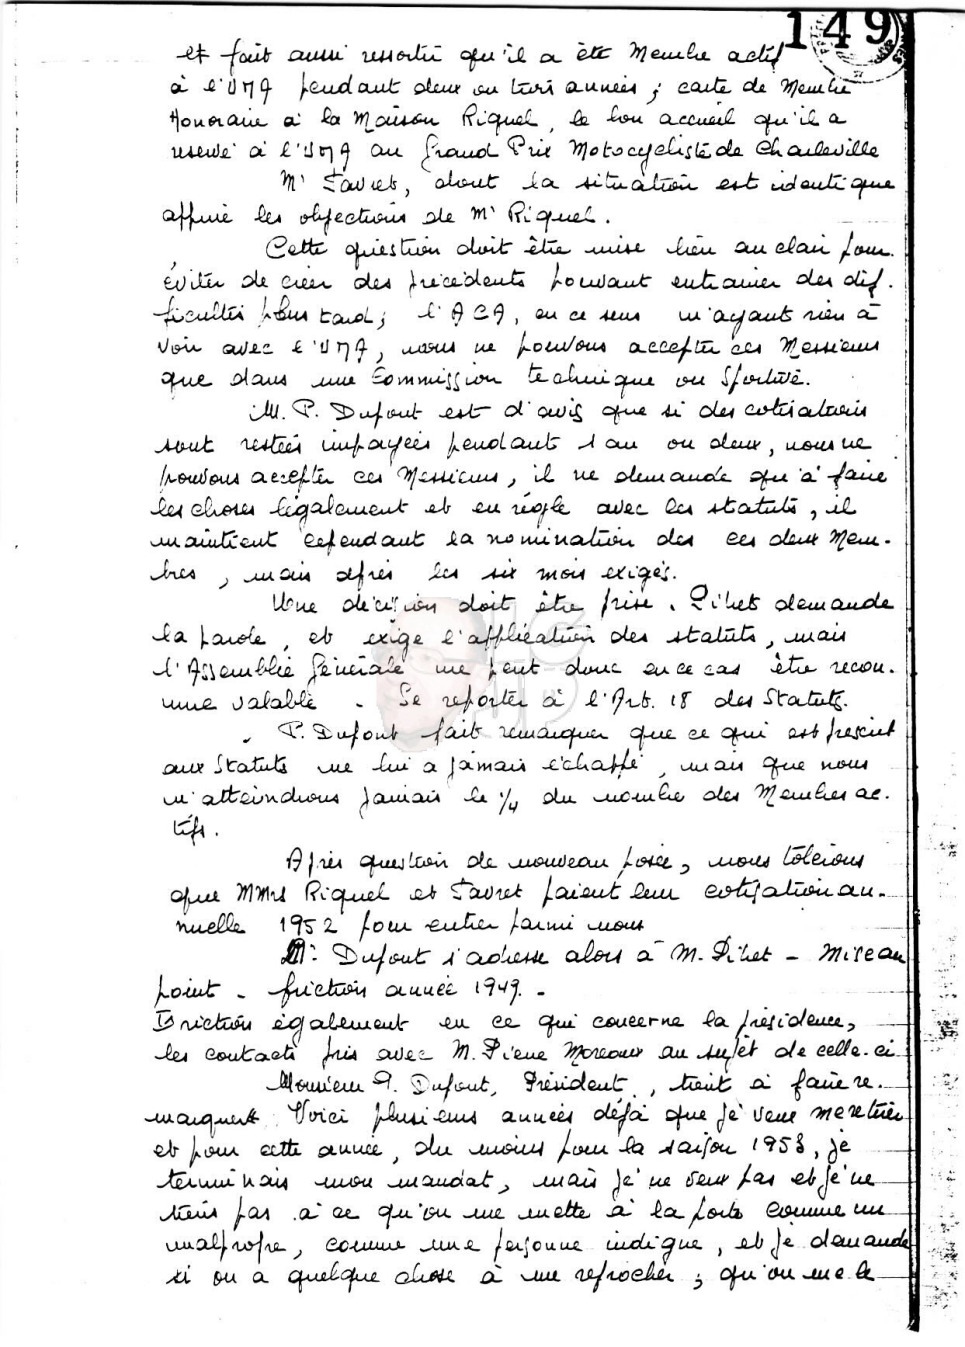 149
et fait aussi ressortir qu'il a été Membre actif
à l'UMA pendant deux ou trois années ; carte de Membre
Honoraire à la Maison Riquel, le bon accueil qu'il a
reservé à l'UMA au Grand Prix Motocycliste de Charleville
Mr Favret, dont la situation est identique
appuie les objections de Mr Riquel.
Cette question doit être mise bien au clair pour
éviter de créer des précédents pouvant entrainer des dif.
ficultés plus tard ; l'ACA, en ce sens n'ayant rien à
voir avec l'UMA, nous ne pouvons accepter ces Messieurs
que dans une Commission technique ou Sportive.
M. P. Dupont est d'avis que si des cotisations
sont restées impayées pendant 1 an ou deux, nous ne
pouvons accepter ces Messieurs, il ne demande qu'à faire
les choses légalement et en règle avec les statuts, il
maintient cependant la nomination des ces deux Mem-
bres, mais après les six mois exigés.
Une décision doit être prise. Pihet demande
la parole, et exige l'application des statuts, mais
l'Assemblée Générale ne peut donc en ce cas être recon.
nue valable - Se reporter à l'Art. 18 des Statuts.
P. Dupont fait remarquer que ce qui est prescrit
aux Statuts ne lui a jamais échappé, mais que nous
n'atteindrons jamais le 1/4 du nombre des Membres ac.
tifs.
Après question de nouveau posée, nous tolérons
que MMrs Riquel et Favret paient leur cotisation an.
nuelle 1952 pour entrer parmi nous
Mr Dupont s'adresse alors à M. Pihet - Mise au
point - friction année 1949. -
Friction également en ce qui concerne la présidence,
les contacts pris avec M. Pierre Moreaux au sujet de celle-ci
Monsieur P. Dupont, Président, tient à faire re.
marquer Voici plusieurs années déjà que je veux me retirer
et pour cette année, du moins pour la saison 1953, je
terminais mon mandat, mais je ne veux pas et je ne
tiens pas à ce qu'on me mette à la porte comme un
malpropre, comme une personne indigne, et je demande
si on a quelque chose à me reprocher ; qu'on me le